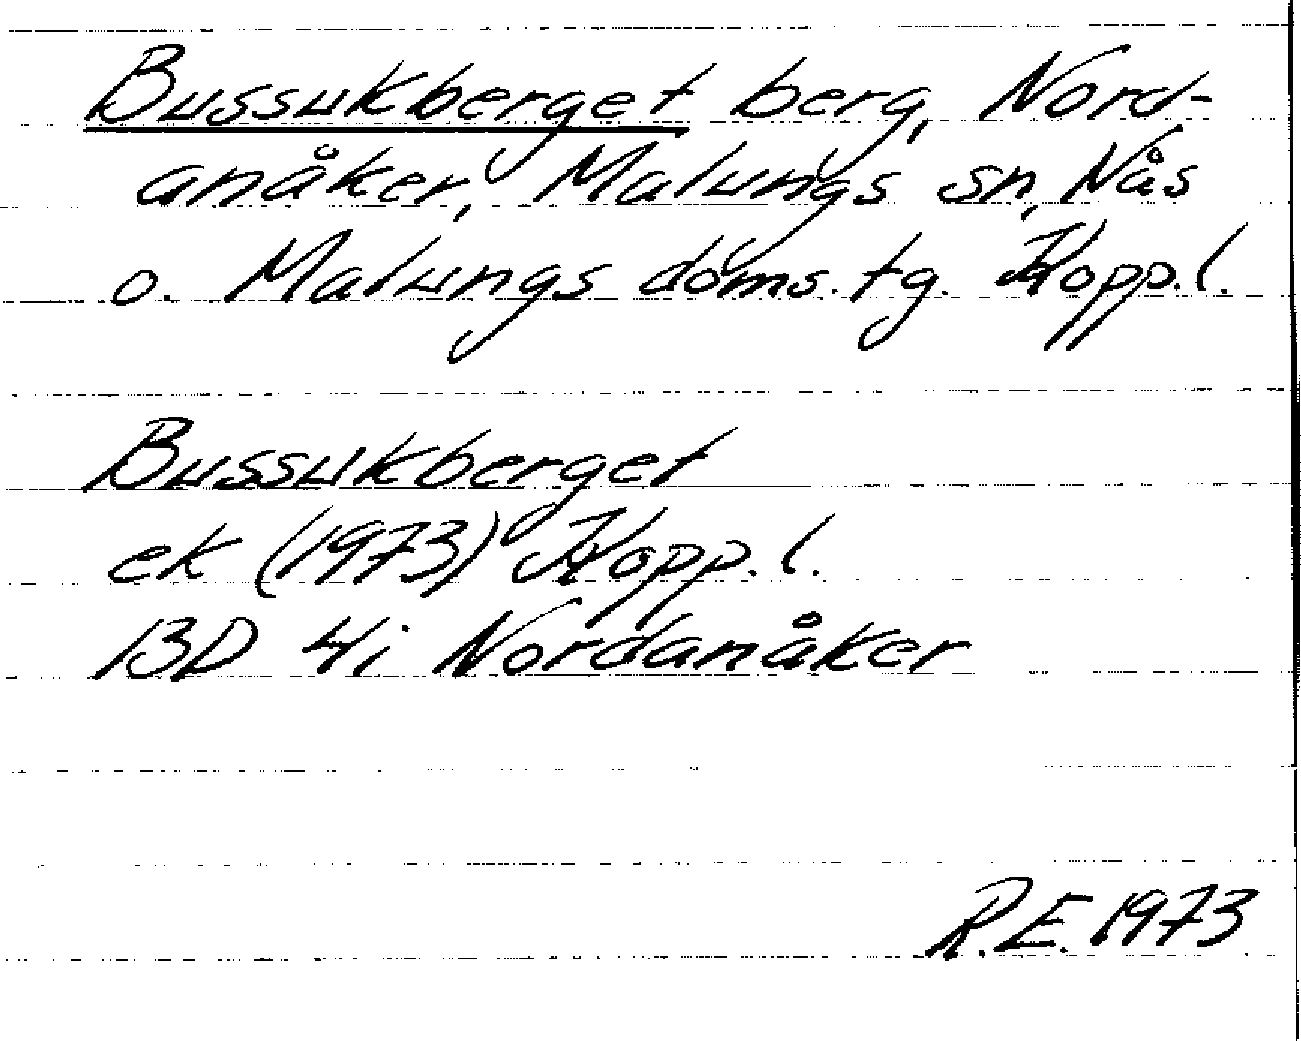 Bussukberget berg, Nord-
anåker, Malungs sn, Nås
o. Malungs doms. tg. Kopp. l.
Bussukberget
ek (1973) Kopp. l.
13D 4i Nordanåker
R.E. 1973